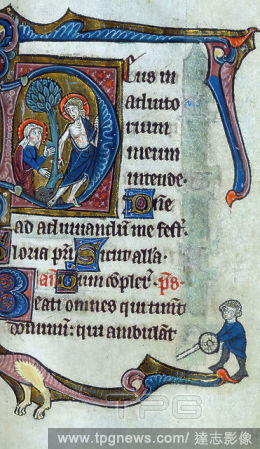 Deus in
adiuto
rium
meum
intende.
Domine
ad adiuuandum me fest.
Gloria pri Sicut all'a.
an. Cum complet'. ps.
Beati omnes qui timent
dominum: qui ambulant
TPG
www.tpgnews.com/ 達志影像